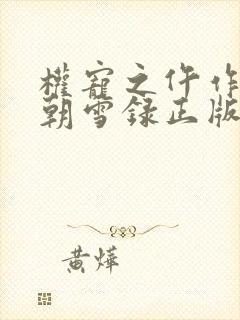 權寵之仵作
朝雪錄正版
黄燁